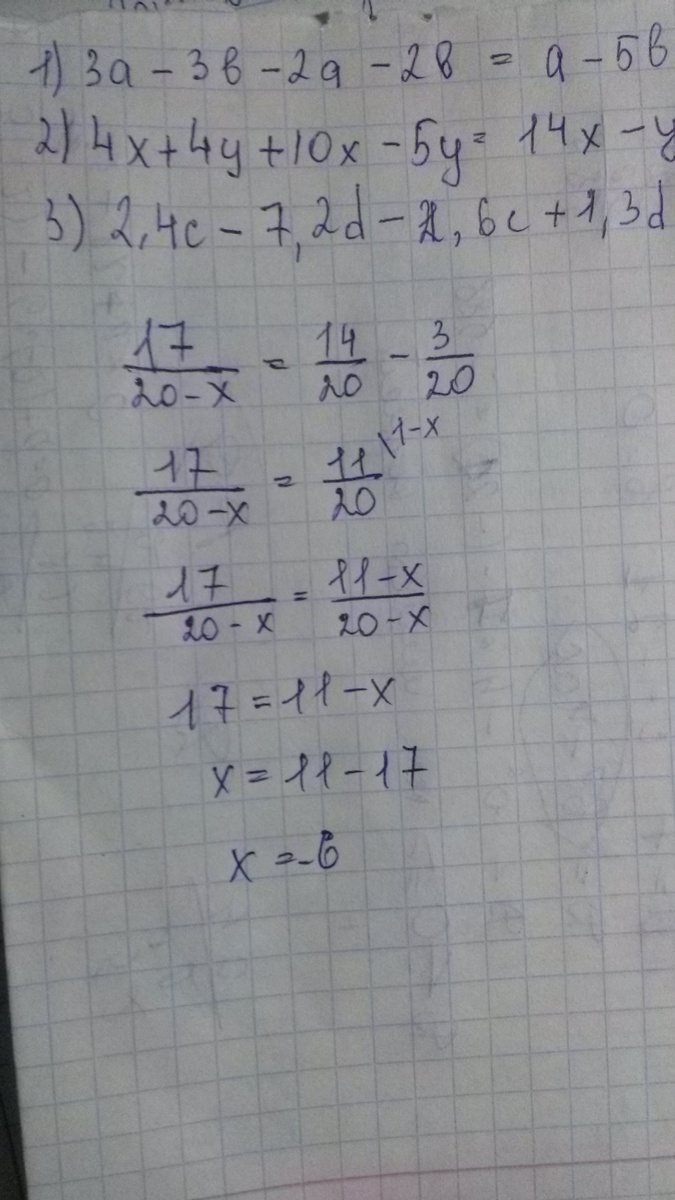 1) 3a - 3в - 2a - 2в = a - 5в
2) 4x + 4y + 10x - 5y = 14x - y
3) 2,4c - 7,2d - 2,6c + 1,3d
17/(20 - x) = 14/20 - 3/20
17/(20 - x) = 11/20 \1-x
17/(20 - x) = (11 - x)/(20 - x)
17 = 11 - x
x = 11 - 17
x = -6